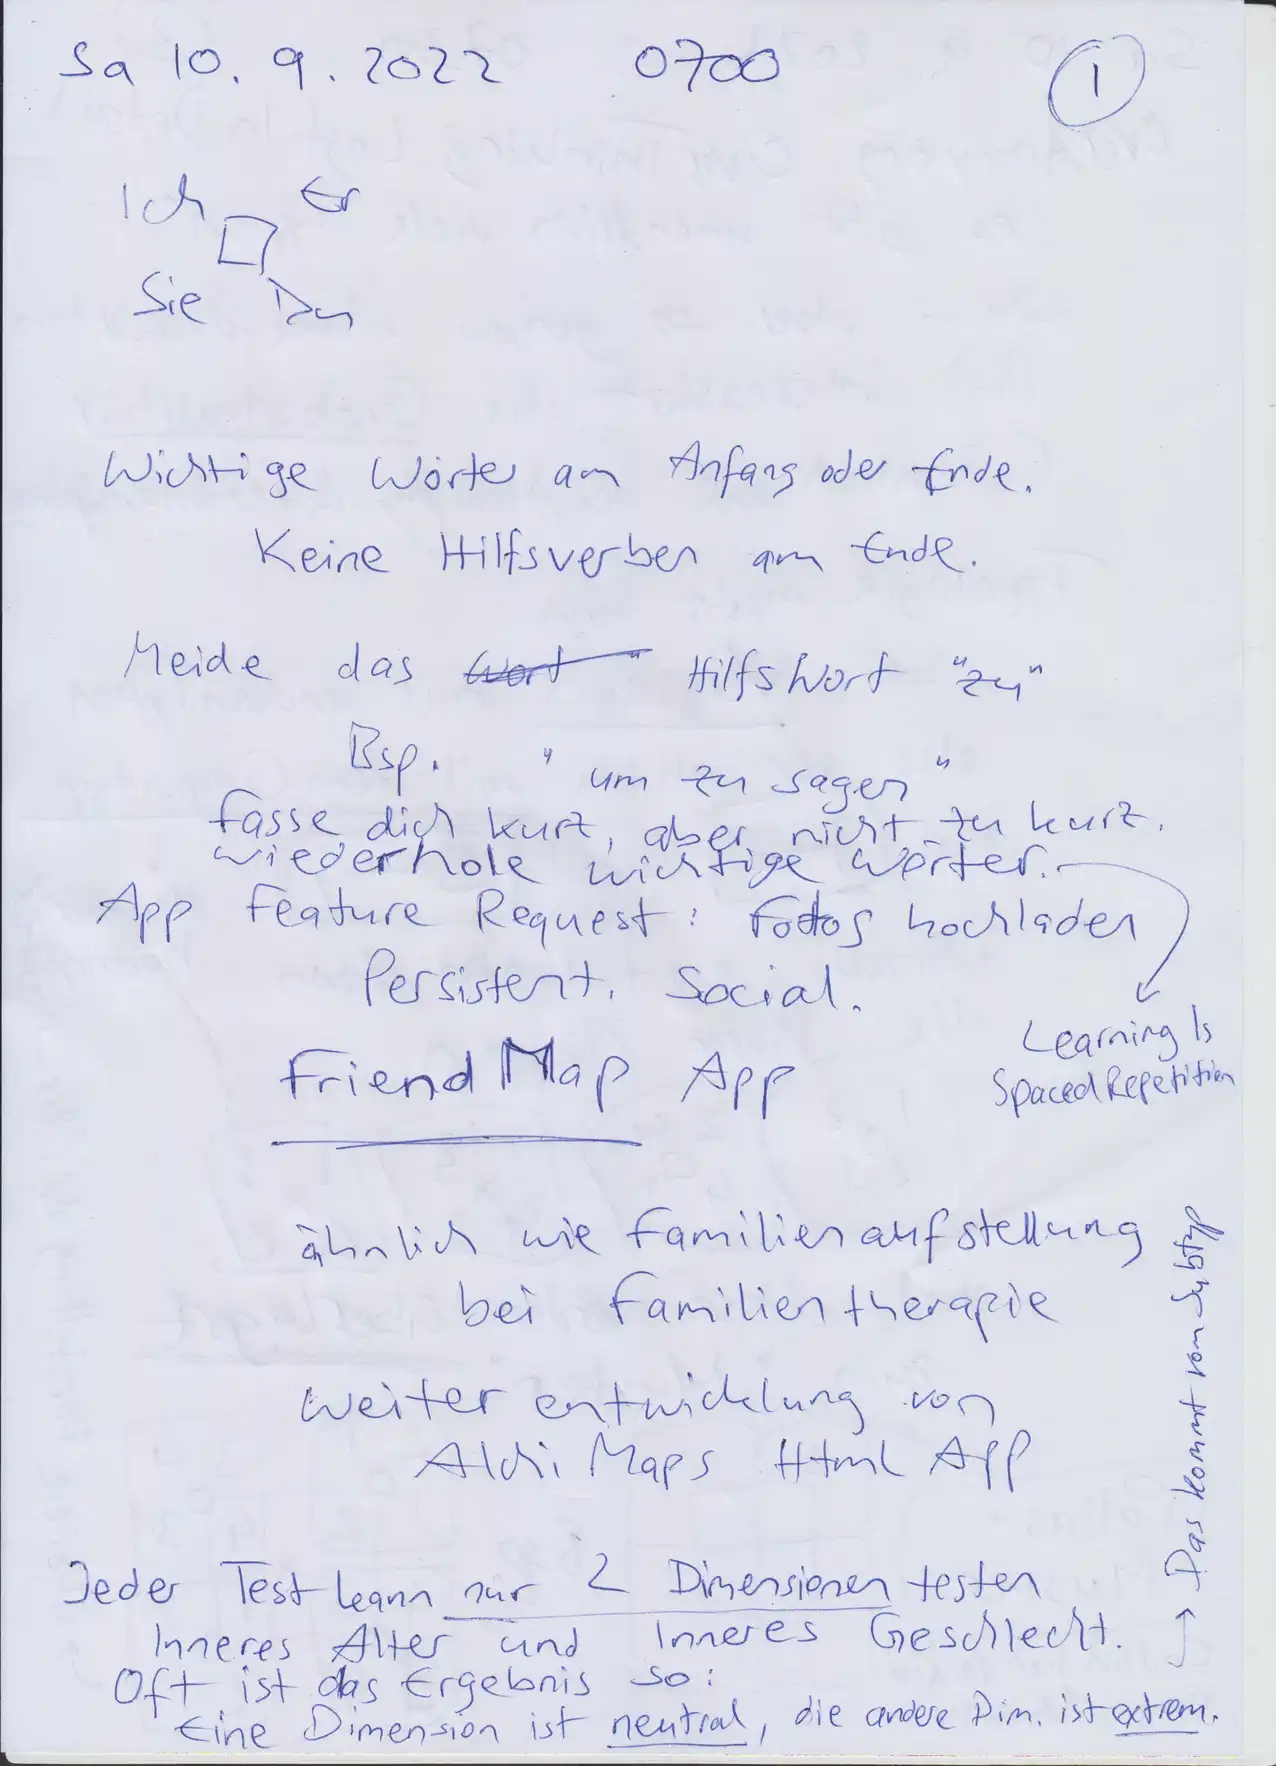 Sa 10. 9. 2022 0700 1
Ich Er
Sie Du
Wichtige Wörter am Anfang oder Ende.
Keine Hilfsverben am Ende.
Meide das Wort " Hilfswort "zu"
Bsp. "um zu sagen"
Fasse dich kurz, aber nicht zu kurz.
wiederhole wichtige Wörter.
App Feature Request: Fotos hochladen
Persistent. Social.
Learning Is
Spaced Repetition
FriendMap App
ähnlich wie Familienaufstellung
bei Familientherapie
Weiterentwicklung von
Aldi Maps Html App
Jeder Test kann nur 2 Dimensionen testen
Inneres Alter und Inneres Geschlecht.
→ Das kommt vom Subtyp
Oft ist das Ergebnis so:
Eine Dimension ist neutral, die andere Dim. ist extrem.